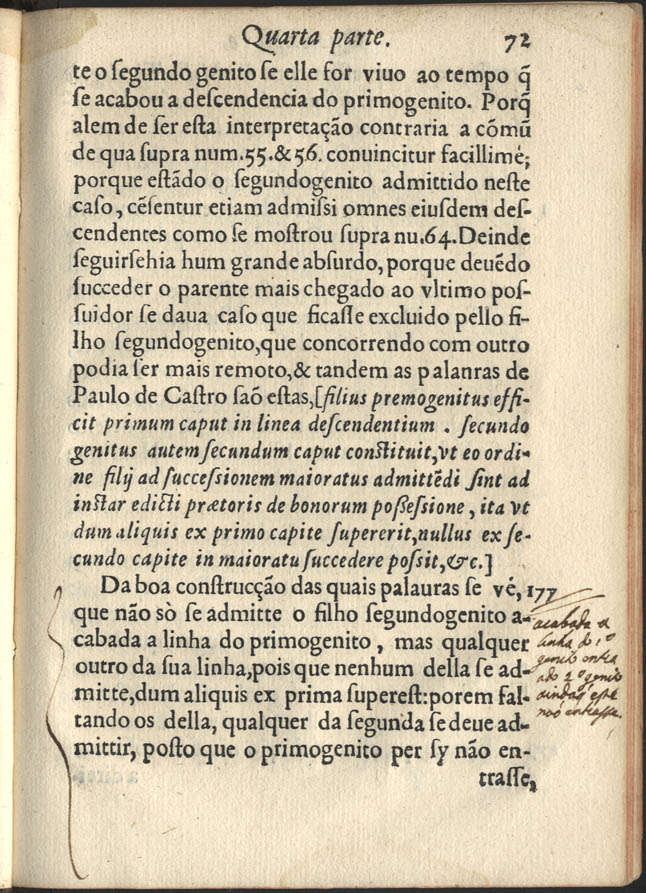 Quarta parte. 72
te o ſegundo genito ſe elle for viuo ao tempo q̃
ſe acabou a deſcendencia do primogenito. Porq̃
alem de ſer eſta interpretação contraria a cómũ
de qua ſupra num.55.&56. conuincitur facillimè;
porque eſtãdo o ſegundogenito admittido neſte
caſo, cẽſentur etiam admiſsi omnes eiuſdem deſ-
cendentes como ſe moſtrou ſupra nu.64.Deinde
ſeguirſehia hum grande abſurdo, porque deuẽdo
ſucceder o parente mais chegado ao vltimo poſ-
ſuidor ſe daua caſo que ficaſſe excluido pello fi-
lho ſegundogenito,que concorrendo com outro
podia ſer mais remoto,& tandem as palanras de
Paulo de Caſtro ſaõ eſtas,[filius premogenitus effi-
cit primum caput in linea deſcendentium . ſecundo
genitus autem ſecundum caput conſtituit,vt eo ordi-
ne filij ad ſucceſsionem maioratus admittẽdi ſint ad
inſtar edicti prætoris de bonorum poßeſsione, ita vt
dum aliquis ex primo capite ſupererit,nullus ex ſe-
cundo capite in maioratu ſuccedere poſsit,&c.]
Da boa conſtrucção das quais palauras ſe vé, 177
que não sò ſe admitte o filho ſegundogenito a-
cabada a linha do primogenito , mas qualquer
outro da sua linha,pois que nenhum della ſe ad-
mitte,dum aliquis ex prima ſupereſt:porem fal-
tando os della, qualquer da ſegunda ſe deue ad-
mittir, poſto que o primogenito per ſy não en-
traſſe,
acabada a
linha do 1º
genito entra
a do 2º genito
ainda q̃ este
naõ entrasse.